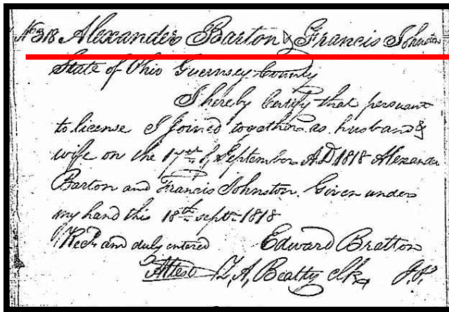 No 318 Alexander Barton & Francis Johnston
State of Ohio Guernsey County
I hereby Certify that persuant
to license I Joined together as husband &
wife on the 17th of September A.D 1818 Alexander
Barton and Francis Johnston. Given under
my hand this 18th sept 1818
Recd and duly entered Edward Bratton
Attest Z, A, Beatty clk J.P.